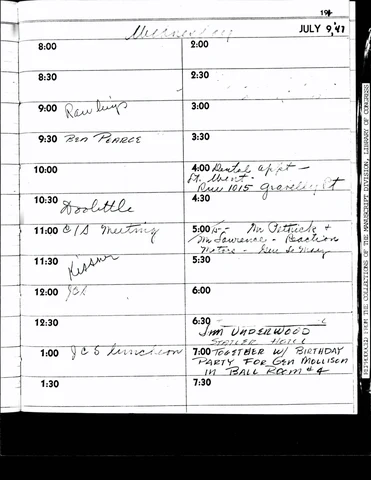 194
Wednesday
JULY 9, '47
8:00
8:30
9:00 Rawlings
9:30 BEN PEARCE
10:00
10:30 Doolittle
11:00 C/S Meeting
11:30 Kissner
12:00
12:30
1:00 JCS Luncheon
1:30
2:00
2:30
3:00
3:30
4:00 Dental appt —
Rm 1015
4:30
5:00 Mr. &
Mr Lawrence - Reaction
Motors - Gen LeMay
5:30
6:00
6:30
JIM UNDERWOOD
STATLER HOTEL
7:00 TOGETHER W/ BIRTHDAY
PARTY FOR GEN MOLLISON
IN BALL ROOM # 4
7:30
REPRODUCED FROM THE COLLECTIONS OF THE MANUSCRIPT DIVISION, LIBRARY OF CONGRESS